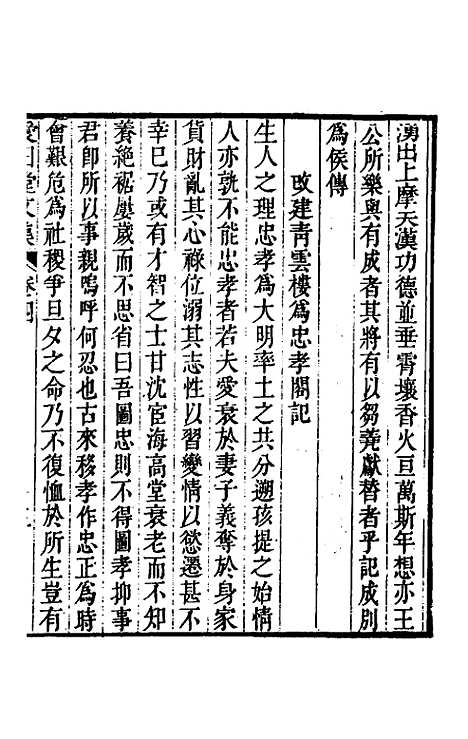 湧出上摩天漢功德並垂霄壤香火亘萬斯年想亦王
公所樂與有成者其將有以芻蕘獻替者乎記成別
為侯傳
改建青雲樓為忠孝閣記
生人之理忠孝為大明率土之共分遡孩提之始情
人亦孰不能忠孝者若夫愛衰於妻子義奪於身家
貨財亂其心祿位溺其志性以習變情以慾遷甚不
幸巳乃或有才智之士甘沈宦海高堂衰老而不知
養絕裾屢歲而不思省曰吾圖忠則不得圖孝抑事
君卽所以事親嗚呼何忍也古來移孝作忠正為時
會艱危為社稷爭旦夕之命乃不復恤於所生豈有
愛日堂文集 卷四